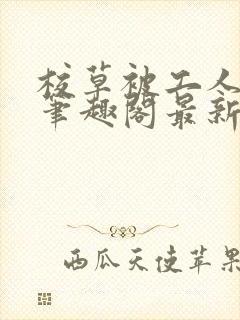 校草被工人
筆趣閣最新
西瓜天使苹果